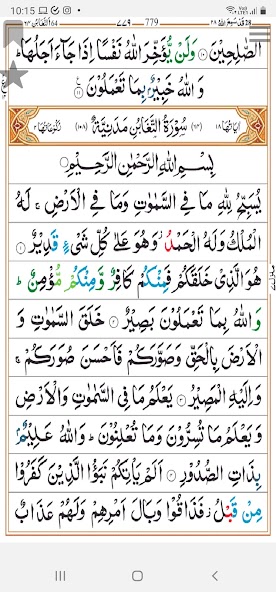 10:15
التغابن ٦٤ ٧٧٩ 779 قد سمع الله ٢٨
الصّٰلِحِيْنَ ۝ وَلَنْ يُّؤَخِّرَ اللّٰهُ نَفْسًا اِذَا جَآءَ اَجَلُهَا ؕ
وَ اللّٰهُ خَبِيْرٌۢ بِمَا تَعْمَلُوْنَ ۝
اٰيَاتُهَا ١٨ (٦٤) سُوْرَةُ التَّغَابُنِ مَدَنِيَّةٌ (١٠٨) رُكُوْعَاتُهَا ٢
بِسْمِ اللّٰهِ الرَّحْمٰنِ الرَّحِيْمِ ۝
يُسَبِّحُ لِلّٰهِ مَا فِي السَّمٰوٰتِ وَمَا فِي الْاَرْضِ ۚ لَهُ
الْمُلْكُ وَلَهُ الْحَمْدُ ؗ وَهُوَ عَلٰى كُلِّ شَيْءٍ قَدِيْرٌ ۝
هُوَ الَّذِيْ خَلَقَكُمْ فَمِنْكُمْ كَافِرٌ وَّمِنْكُمْ مُّؤْمِنٌ ؕ
وَاللّٰهُ بِمَا تَعْمَلُوْنَ بَصِيْرٌ ۝ خَلَقَ السَّمٰوٰتِ وَ
الْاَرْضَ بِالْحَقِّ وَصَوَّرَكُمْ فَاَحْسَنَ صُوَرَكُمْ ۚ
وَاِلَيْهِ الْمَصِيْرُ ۝ يَعْلَمُ مَا فِي السَّمٰوٰتِ وَالْاَرْضِ
وَيَعْلَمُ مَا تُسِرُّوْنَ وَمَا تُعْلِنُوْنَ ؕ وَاللّٰهُ عَلِيْمٌۢ
بِذَاتِ الصُّدُوْرِ ۝ اَلَمْ يَاْتِكُمْ نَبَؤُا الَّذِيْنَ كَفَرُوْا
مِنْ قَبْلُ ؗ فَذَاقُوْا وَبَالَ اَمْرِهِمْ وَلَهُمْ عَذَابٌ